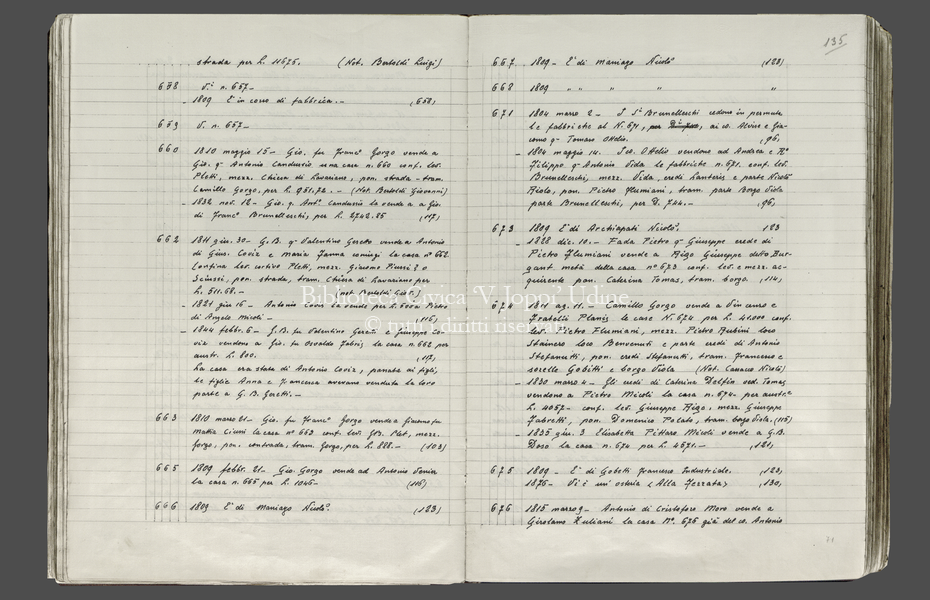 strada per L. 11675. (Not. Bertoldi Luigi)
658 V. n. 657-
- 1809 È in corso di fabbrica. - (658)
659 V. n. 657-
660 1810 maggio 15- Gio. fu Franc° Gorgo vende a
Gio. q. Antonio Canduzzio una casa n. 660 conf. lev.
Pletti, mezz. Chiesa di Lavariano, pon. strada - tram.
Camillo Gorgo, per L. 951,72. - (Not. Bertoldi Giovanni)
- 1832 nov. 12- Gio. q. Ant° Canduzzio la vende a Gio.
di Franc° Brunelleschi, per L. 2742.85 (117)
662 1811 giu. 30- G.B. q. Valentino Goretto vende a Antonio
di Gius. Coviz e Maria Janna coniugi la casa n° 662
Confina lev. cortivo Pletti, mezz. Giacomo Piussi? o
Sciussi, pon. strada, tram. Chiesa di Lavariano per
L. 511.68. - (not. Bertoldi Giov.)
- 1821 giu 16 - Antonio Coviz la vende per L. 600 a Pietro
di Angelo Micoli - (116)
- 1844 febbr. 6- G.B. fu Valentino e Giuseppe Co-
viz vendono a Gio. fu Osvaldo Fabris la casa n. 662 per
austr. L. 800. (117)
La casa era stata di Antonio Coviz, passata ai figli,
le figlie Anna e Francesca avevano venduta la loro
parte a G.B. Goretti. -
663 1810 marzo 21- Gio. fu Franc° Gorgo vende a Giacomo fu
Mattia Ciussi la casa n° 663 conf. lev. Gio. Plet, mezz.
Gorgo, pon. contrada, tram. Gorgo, per L. 888. - (103)
665 1809 febbr. 21- Gio. Gorgo vende ad Antonio Venier
la casa n. 665 per L. 1046- (116)
666 1809 È di Maniago Nicolò. (123)
135
667 1809 - È di Maniago Nicolò (123)
668 1809 " " " " "
671 1804 marzo 2 - I S.i Brunelleschi cedono in permuta
le fabbriche al N. 671, ai co. Alvise e Gia-
como q. Tomaso Ottelio. (96)
- 1804 maggio 14. I co. Ottelio vendono ad Andrea e
Filippo q. Antonio Vida le fabbriche n. 671. conf. lev.
Brunelleschi, mezz. Vida, eredi Lanteris e parte Nicolò
Riolo, pon. Pietro Flumiani, tram. parte Borgo Viola
parte Brunelleschi, per D. 744. - (96)
673 1809 È di Archiapati Nicolò. 123
- 1828 dic. 10. - Fada Pietro q. Giuseppe erede di
Pietro Flumiani vende a Rigo Giuseppe detto Bur-
gant metà della casa n° 673 conf. lev. e mezz. ac-
quirente pon. Caterina Tomas, tram. borgo. (114)
674 1811 ag. 11. - Camillo Gorgo vende a Vincenzo e
Fratelli Planis le case N. 674 per L. 41.000 conf.
lev. Pietro Flumiani, mezz. Pietro Rubini loco
Stainero loco Benvenuti e parte eredi di Antonio
Stefanutti, pon. eredi Stefanutti, tram. Francesco e
sorelle Gobitti e borgo Viola (Not. Nicolò)
- 1830 marzo 4 - Gli eredi di Caterina Delfin ved. Tomas
vendono a Pietro Micoli la casa n. 674- per austr.e
L. 4057 - conf. lev. Giuseppe Rigo, mezz. Giuseppe
Fabretti, pon. Domenico Polato, tram. borgo Viola. (115)
- 1835 giu. 3 Elisabetta Pittaro Micoli vende a G.B.
Doso la casa n. 674 per L. 4571. - (121)
675 1809 - È di Gobetti Francesco Industriale. (123)
1876 - Vi è un'osteria (Alla Fezzata) (130)
676 1815 marzo 9 - Antonio di Cristoforo Moro vende a
Girolamo Xuliani la casa N°. 676 già del co. Antonio
71
Biblioteca Civica 'V. Joppi' Udine
© tutti i diritti riservati